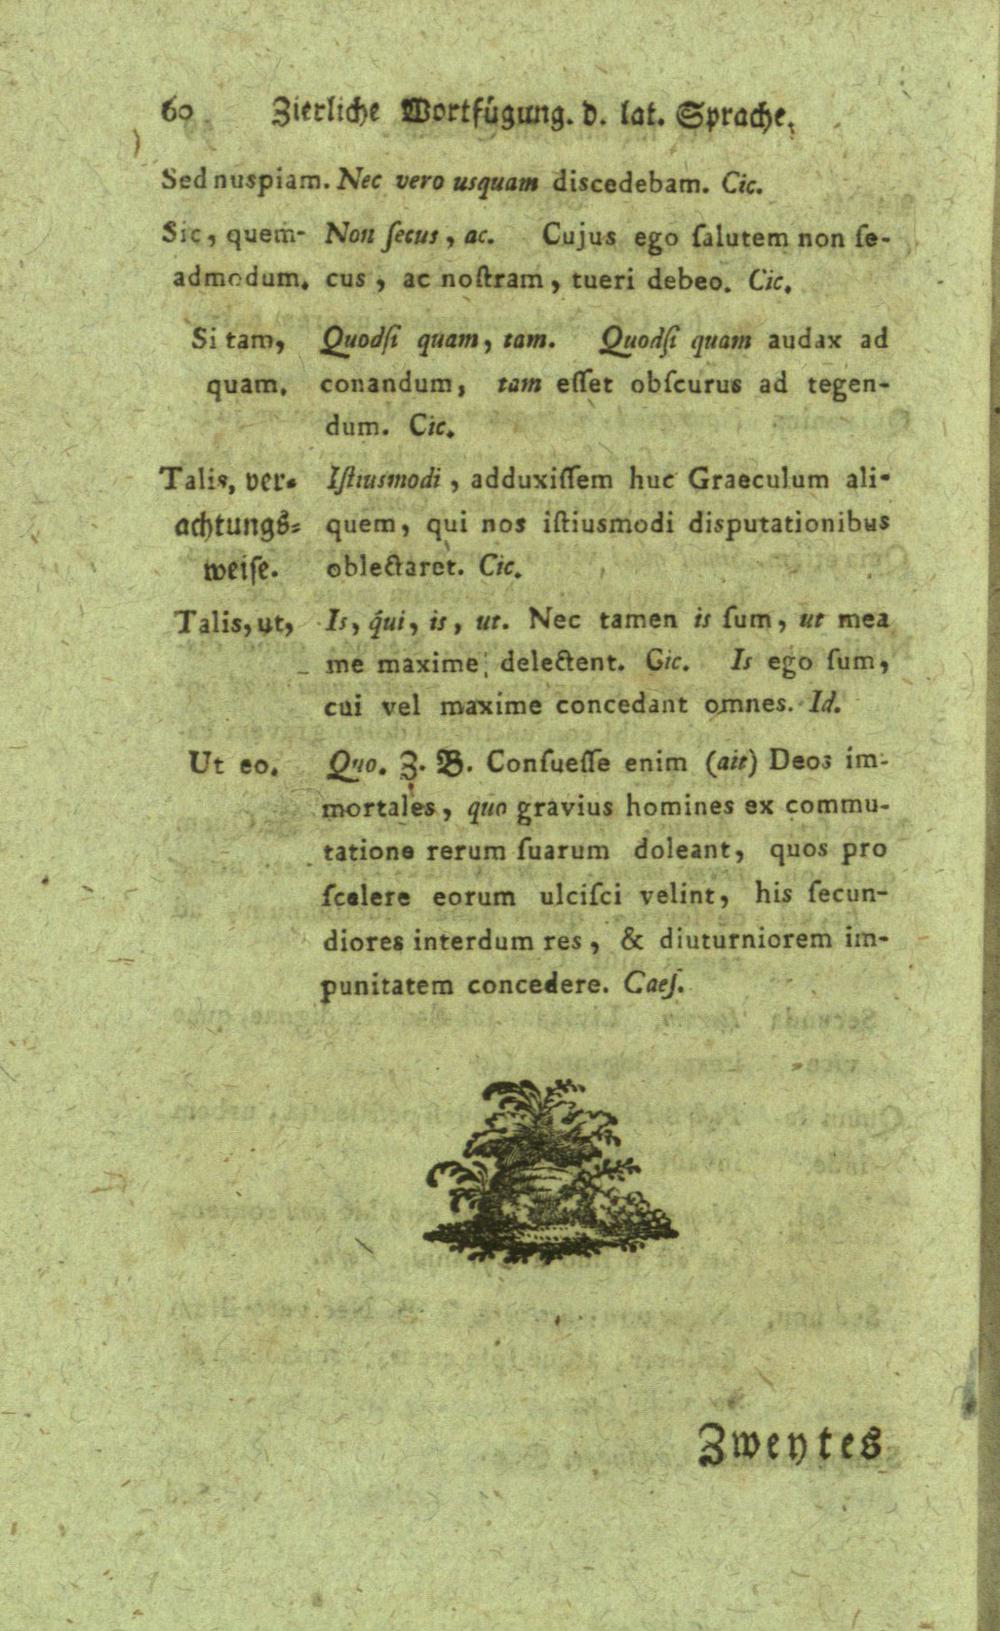 60 Zierliche Wortfügung. d. lat. Sprache.
Sed nuspiam. Nec vero usquam discedebam. Cic.
Sic, quem- Non ſecus, ac. Cujus ego ſalutem non ſe-
admodum. cus, ac noſtram, tueri debeo. Cic.
Si tam, Quodſi quam, tam. Quodſi quam audax ad
quam. conandum, tam eſſet obſcurus ad tegen-
dum. Cic.
Talis, ver- Iſtiusmodi, adduxiſſem huc Graeculum ali-
achtungs- quem, qui nos iſtiusmodi disputationibus
weiſe. oblectaret. Cic.
Talis, ut, Is, qui, is, ut. Nec tamen is ſum, ut mea
me maxime delectent. Cic. Is ego ſum,
cui vel maxime concedant omnes. Id.
Ut eo. Quo. Z. B. Conſueſſe enim (ait) Deos im-
mortales, quo gravius homines ex commu-
tatione rerum ſuarum doleant, quos pro
ſcelere eorum ulciſci velint, his ſecun-
diores interdum res, & diuturniorem im-
punitatem concedere. Caeſ.
Zweytes